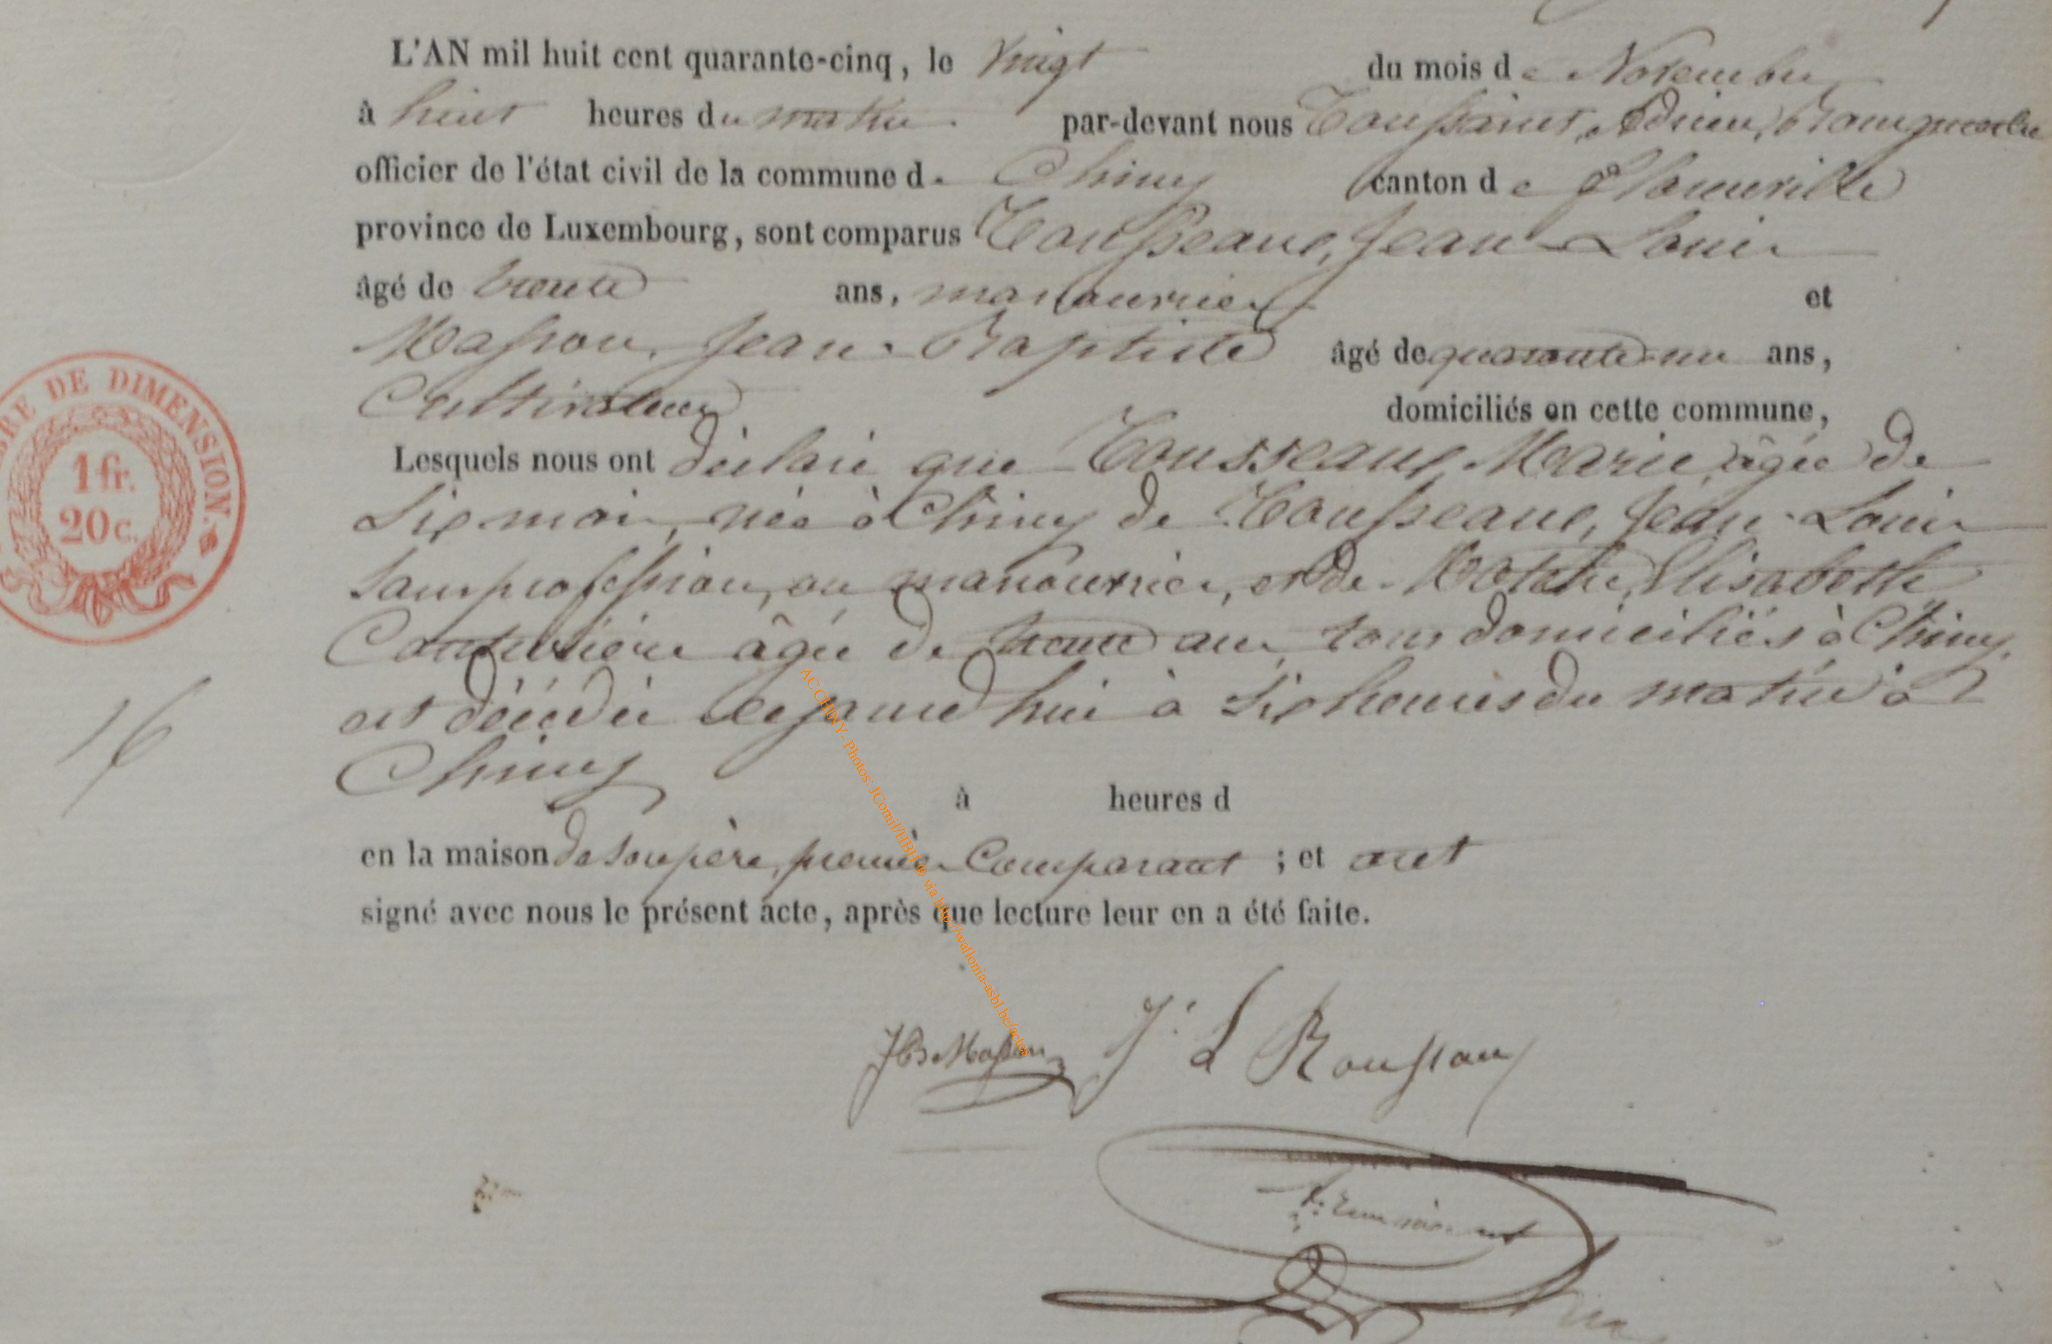 L'AN mil huit cent quarante-cinq, le Vingt du mois de Novembre
à huit heures du matin par-devant nous Toussaint, Adrien, Bourguemestre
officier de l'état civil de la commune de Chiny canton de Florenville
province de Luxembourg, sont comparus Rousseaux, Jean-Louis
âgé de trente ans, manouvrier et
Masson, Jean-Baptiste âgé de quarante-un ans,
Cultivateur domiciliés en cette commune,
Lesquels nous ont déclaré que Rousseaux, Marie, âgée de
Six mois, née à Chiny de Rousseaux, Jean-Louis
sans profession, ou manouvrier, et de Elisabeth
Couturière âgée de trente ans, tous domiciliés à Chiny,
est décédée cejourd'hui à Six heures du matin à
Chiny
à heures d
en la maison de son père, premier Comparant ; et ont
signé avec nous le présent acte, après que lecture leur en a été faite.
JB Masson J. L Roussaux
TIMBRE DE DIMENSION.
1 fr.
20 c.
16